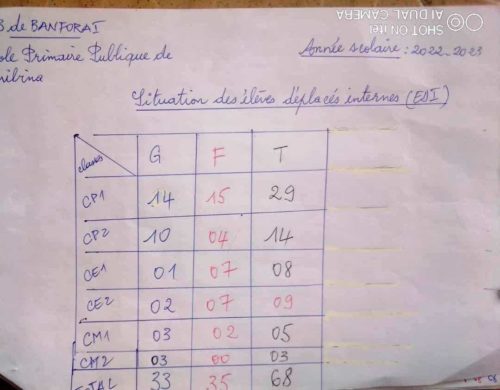 SHOT ON itel
AI DUAL CAMERA
B de BANFORA I
ole Primaire Publique de
Année scolaire : 2022-2023
Situation des élèves déplacés internes (EDI)
classes G F T
CP1 14 15 29
CP2 10 04 14
CE1 01 07 08
CE2 02 07 09
CM1 03 02 05
CM2 03 00 03
TOTAL 33 35 68